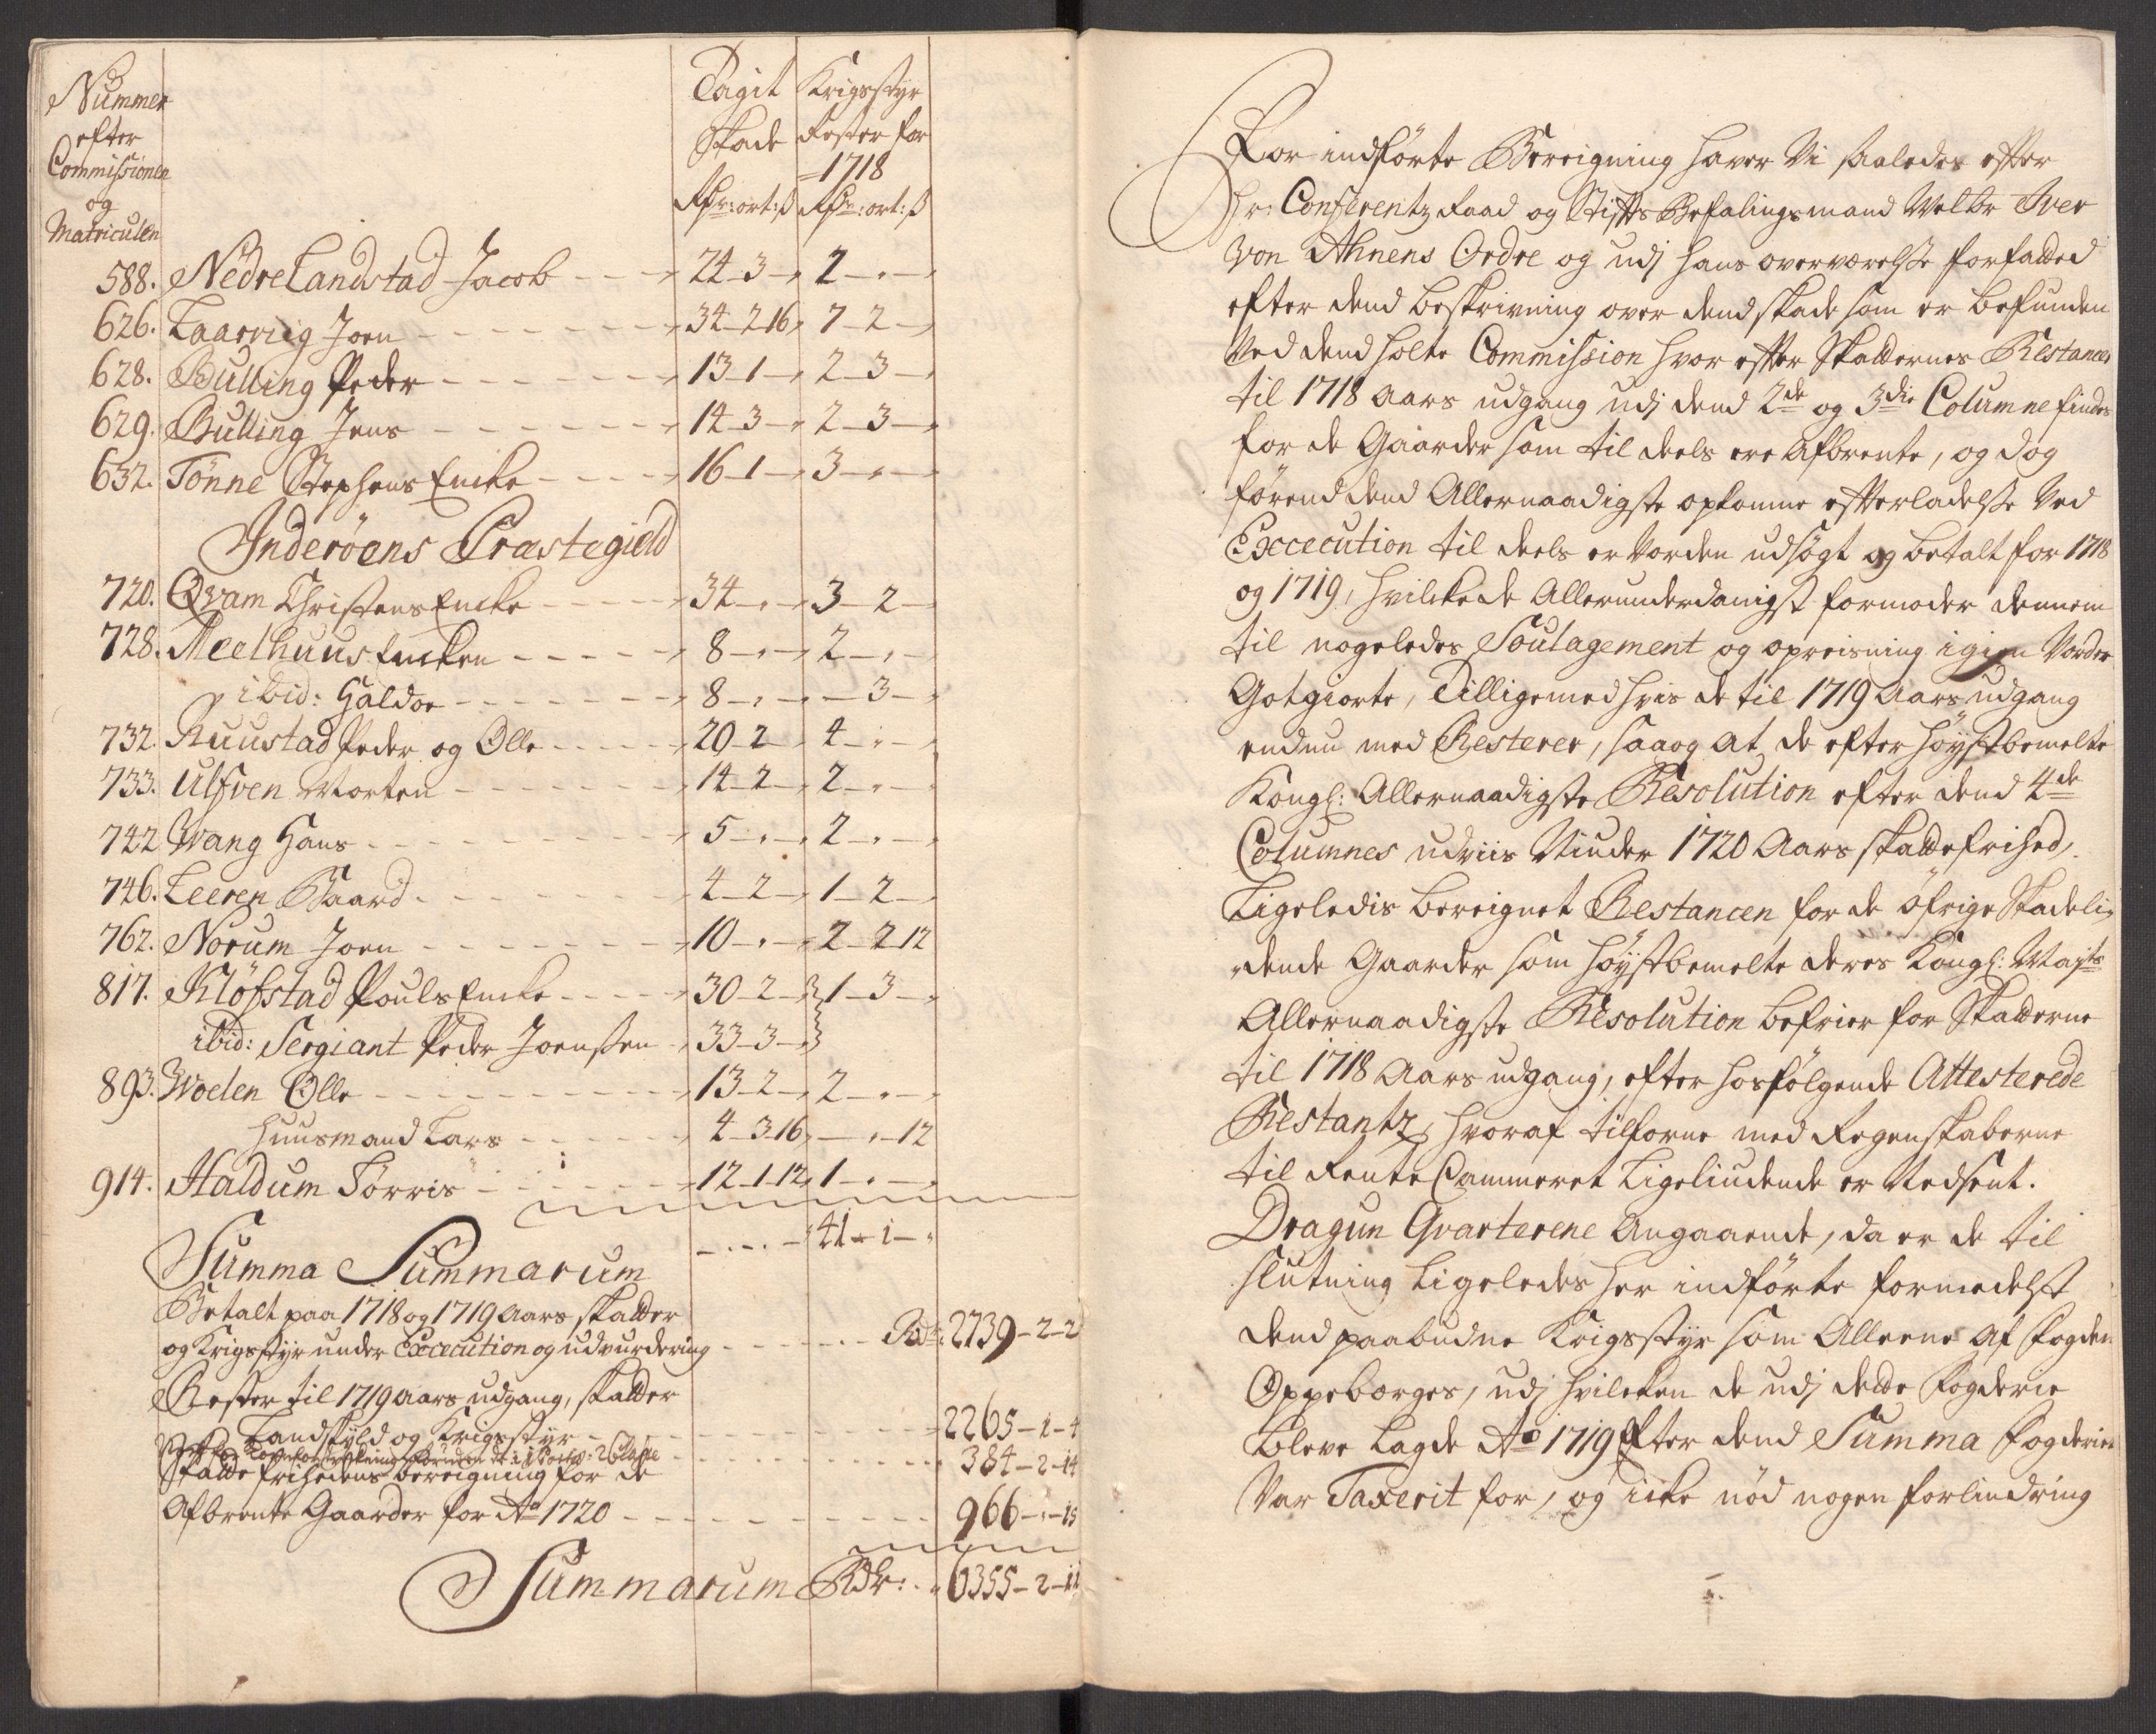 Nummer
efter
Commissionen
og
Matriculen
Tagit Krigsstyr
Skade Rester for
1718
Rdr: ort: ß Rdr: ort: ß
588. Nedre Landstad Jacob - - 24-3-" 2-"-"
626. Laarviig Joen - - - - - - - 34-2-16 7-2-"
628. Bulling Peder - - - - - - - 13-1-" 2-3-"
629. Bulling Jens - - - - - - - 14-3-" 2-3-"
632. Tönne Stephens Encke - - - - 16-1-" 3-"-"
Inderöens Præstegield
720. Qvam Christens Encke - - - - - 34-"-" 3-2-"
728. Meelhuus Encken - - - - - 8-"-" 2-"-"
ibid: Haldor - - - - - - - 8-"-" "-3-"
732. Ruustad Peder og Olle - - - - 20-2-" 4-"-"
733. Ulfven Morten - - - - - - 14-2-" 2-"-"
742 Wang Hans - - - - - - - - 5-"-" 2-"-"
746. Leeren Baard - - - - - - - 4-2-" 1-2-"
762. Norum Joen - - - - - - - - 10-"-" 2-2-12
817. Klöfstad Pouls Encke - - - - 30-2-" 1-3-"
ibid: Sergiant Peder Joensen - 33-3-"
893. Woelen Olle - - - - - - - - - 13-2-" 2-"-"
Huusmand Lars - - - - - 4-3-16 "-"-12
914. Haldum Törris - - - - - - 12-1-12 1-"-"
Summa Summarum - - - - 41-1-"
Betalt paa 1718 og 1719 Aars skatter
og Krigsstyr under Excecution og udvurdering - - - - - Rdr: 2739-2-2
Rester til 1719 Aars udgang, skatter
Landskyld og Krigsstyr - - - - - - - - - 2265-1-4
- - - - - - - - - 384-2-14
Skatte frihedens bereigning for de
Afbrente Gaarder for Ao 1720 - - - - - - - - - 966-"-15
Summarum Rdr: " 6355-2-11
For indförte Bereigning haver Vi saaledes efter
Hr: Conferentz Raad og Stifts Befalingsmand Velbr Iver
von Ahnens Ordre og udj hans overværelse forfatted
efter dend beskrivning over dend skade som er befunden
Ved dend holte Commission hvor efter Skatternes Restancer
til 1718 Aars udgang udj dend 2de og 3die Columne findes
for de Gaarder som til deels ere Afbrente, og dog
förend dend Allernaadigste opkomne efterladelse Ved
Excecution til deels er vorden udsögt og betalt for 1718
og 1719, hvilcke de Allerunderdanigst formoder dennem
til nogeledes Soulagement og opreisning igien Vorder
Gotgiorte, Tilligemed hvis de til 1719 Aars udgang
endnu med Resterer, saa og at de efter höystbemelte
Kongl: Allernaadigste Resolution efter dend 4de
Columnes udviis Niuder 1720 Aars skattefrihed,
Ligeledis bereignet Restancen for de öfrige Skadeli-
dende Gaarder som höystbemelte deres Kongl: Mayts
Allernaadigste Resolution befrier for Skatterne
til 1718 Aars udgang, efter hosfölgende Attesterede
Restantz, hvoraf tilforne med Regenskaberne
til Rente Cammeret Ligeliudende er Nedsent.
Dragun Qvarterene Angaaende, da er de til
slutning Ligeledes her indförte formedelst
dend paabudne Krigsstyr som Alleene af Fogden
Oppebærges, udj hvilcken de udj dette Fogderie
bleve Lagde Ao 1719 Efter dend Summa Fogderiet
Var Taxerit for, og icke nöd nogen forlindring